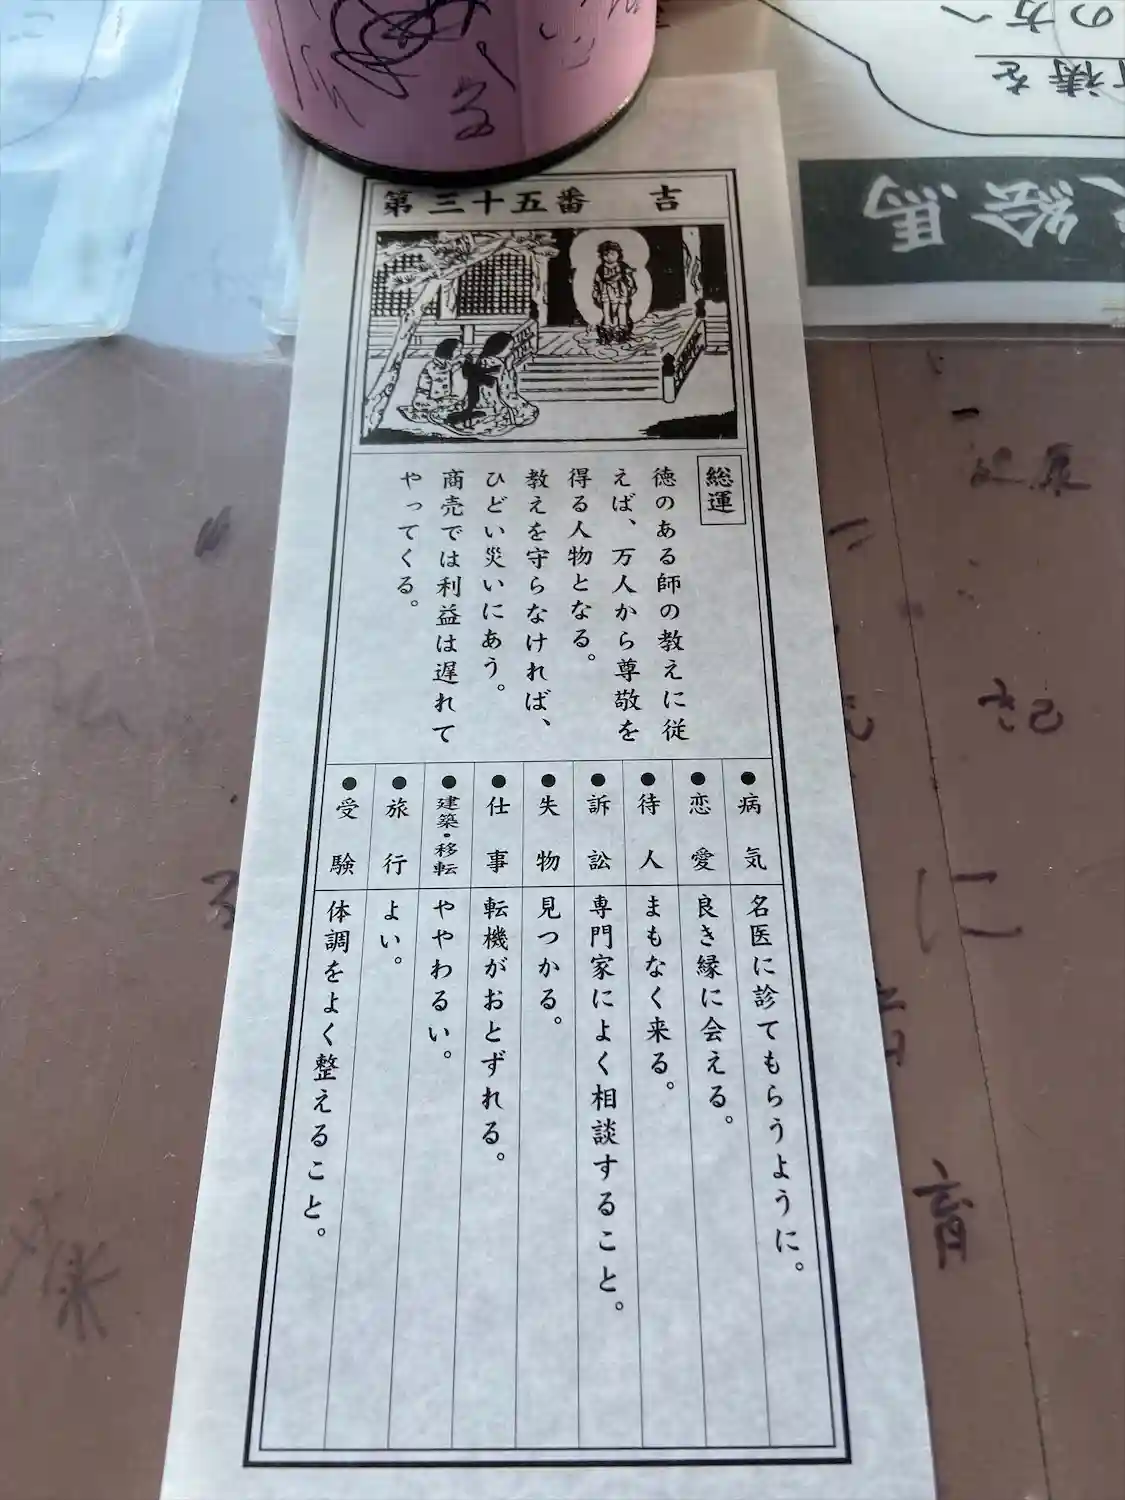 第三十五番　吉
総運
徳のある師の教えに従
えば、万人から尊敬を
得る人物となる。
教えを守らなければ、
ひどい災いにあう。
商売では利益は遅れて
やってくる。
●病気　名医に診てもらうように。
●恋愛　良き縁に会える。
●待人　まもなく来る。
●訴訟　専門家によく相談すること。
●失物　見つかる。
●仕事　転機がおとずれる。
●建築・移転　ややわるい。
●旅行　よい。
●受験　体調をよく整えること。
絵馬
祷を
の方へ
る
に